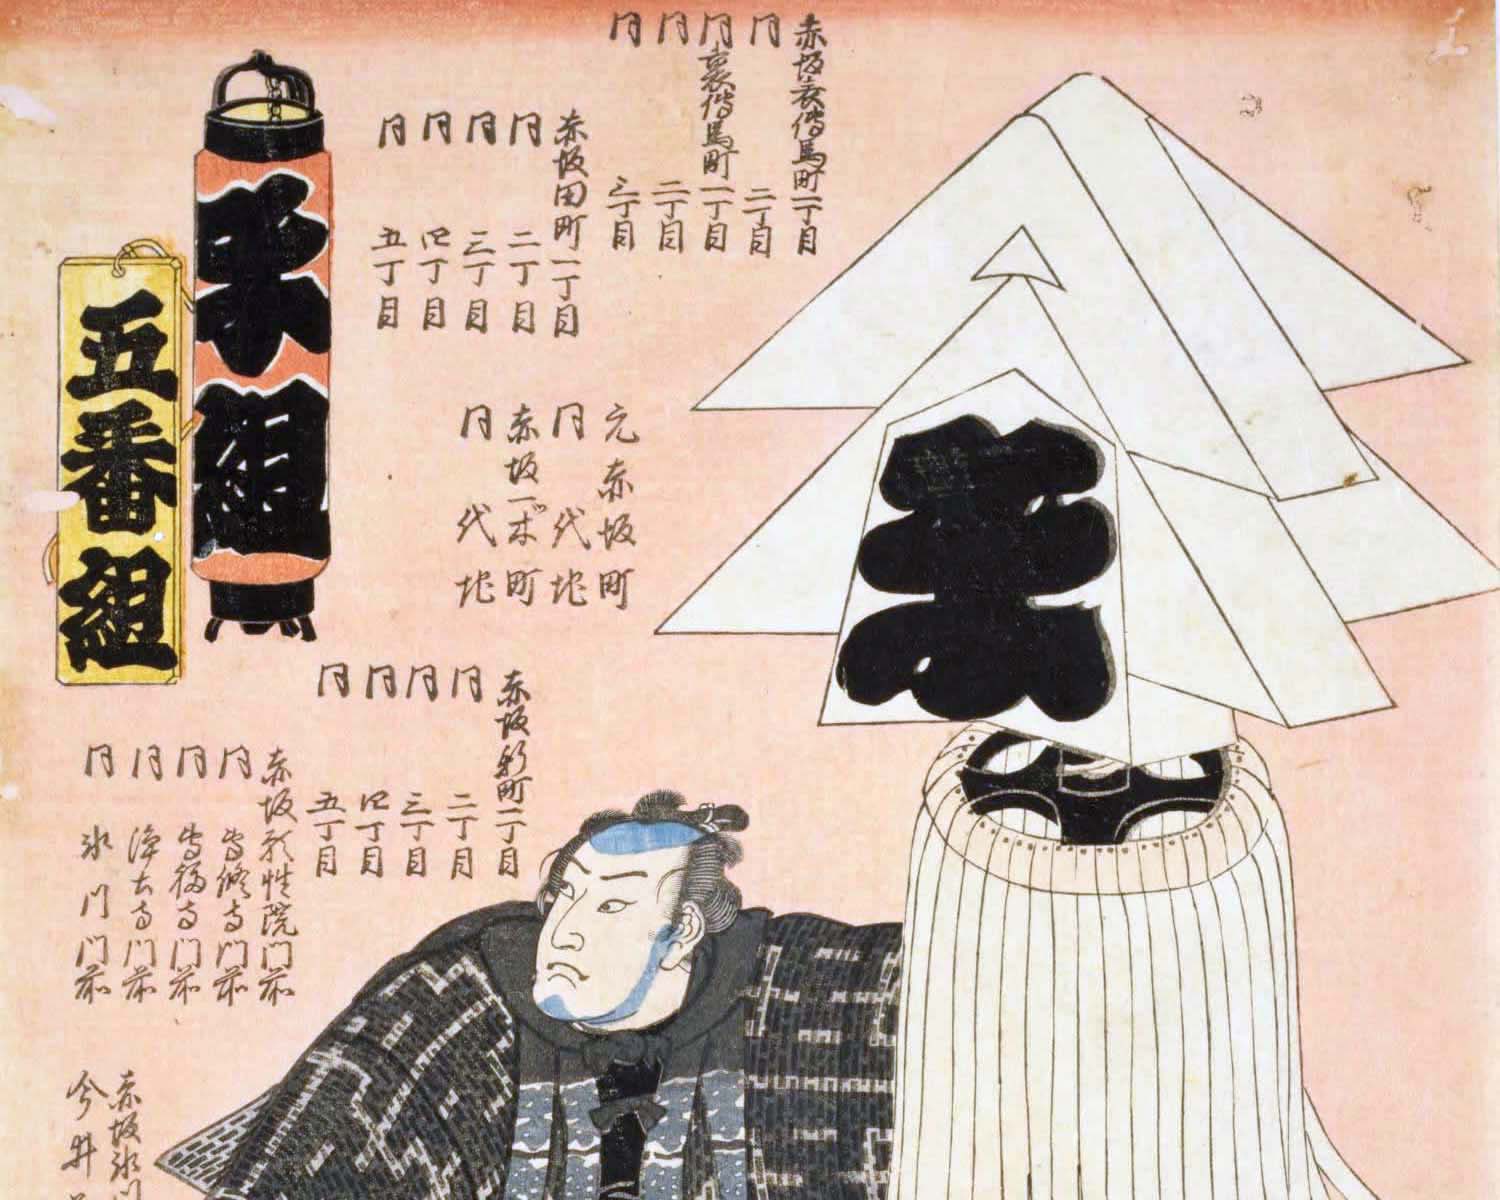 ま
赤坂表傳馬町一丁目
同 二丁目
同裏傳馬町一丁目
同 二丁目
同 三丁目
赤坂田町一丁目
同 二丁目
同 三丁目
同 四丁目
同 五丁目
元赤坂町
同 代地
赤坂一ツ木町
同 代地
赤坂新町一丁目
同 二丁目
同 三丁目
同 四丁目
同 五丁目
赤坂 性院門前
同 専修寺門前
同 専福寺門前
同 浄土寺門前
同 氷川門前
赤坂氷川
今井
ま組
五番組